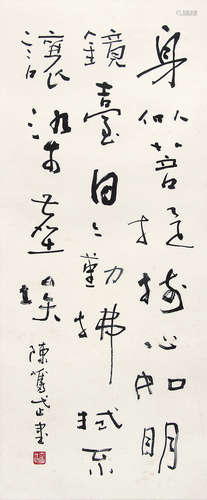 身似菩提樹心如明
鏡臺日々勤拂拭不
讓染塵埃
陳篤正書